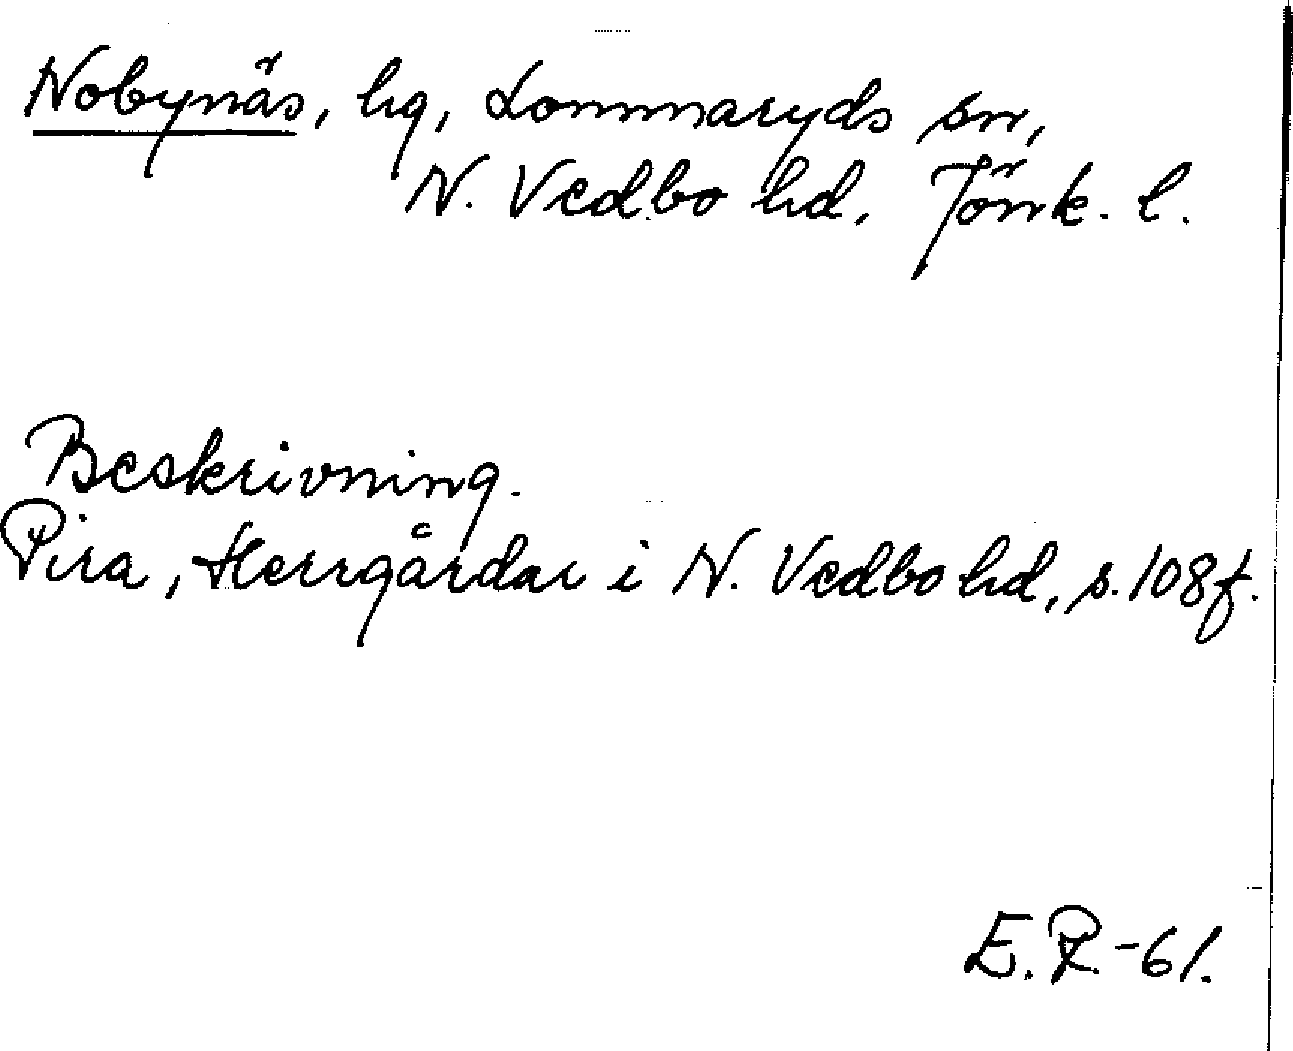 Nobynäs, hg, Lommaryds sn,
N. Vedbo hd. Jönk. l.
Beskrivning.
Pira, Herrgårdar i N. Vedbo hd, s. 108 f.
E. R. -61.